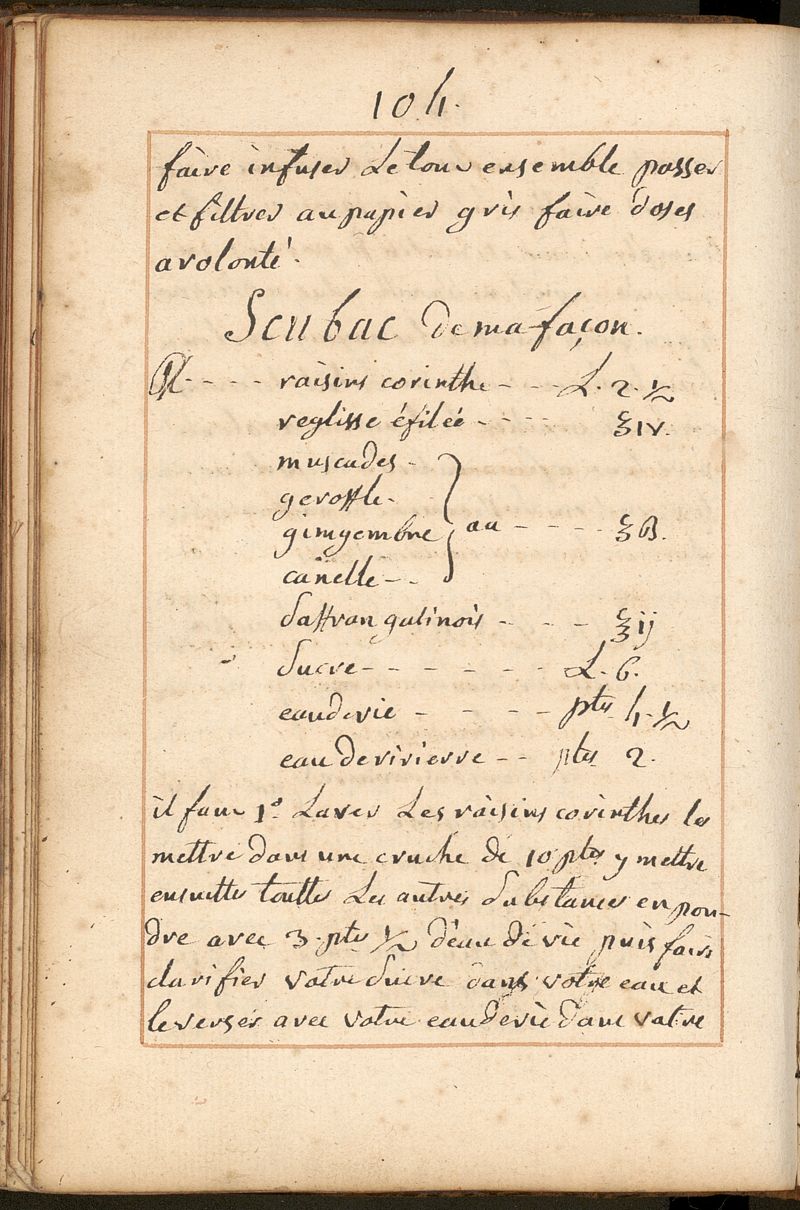 104.
faire infuser Le tout ensemble passer
et filtrer au papier gris faire doses
a volonté.
Scubac de ma façon.
℞ - - - - raisins corinthe - - - L. 2. ½
reglisse éfilée - - - - ℥ IV.
muscades -
geroffle -
gimgembre } aa - - - - ℥ ß.
canelle - -
saffran gatinois - - - ℥ ij
sucre - - - - - - L. 6.
eau de vie - - - - ptes 4. ½
eau de rivierre - - ptes 2.
il faut 1° Laver Les raisins corinthes les
mettre dans une cruche de 10 ptes y mettre
ensuittes touttes Les autres substances en pou-
dre avec 3. ptes ½ d'eau de vie puis faire
clarifier votre sucre dans votre eau et
le verser avec votre eau de vie dans votre